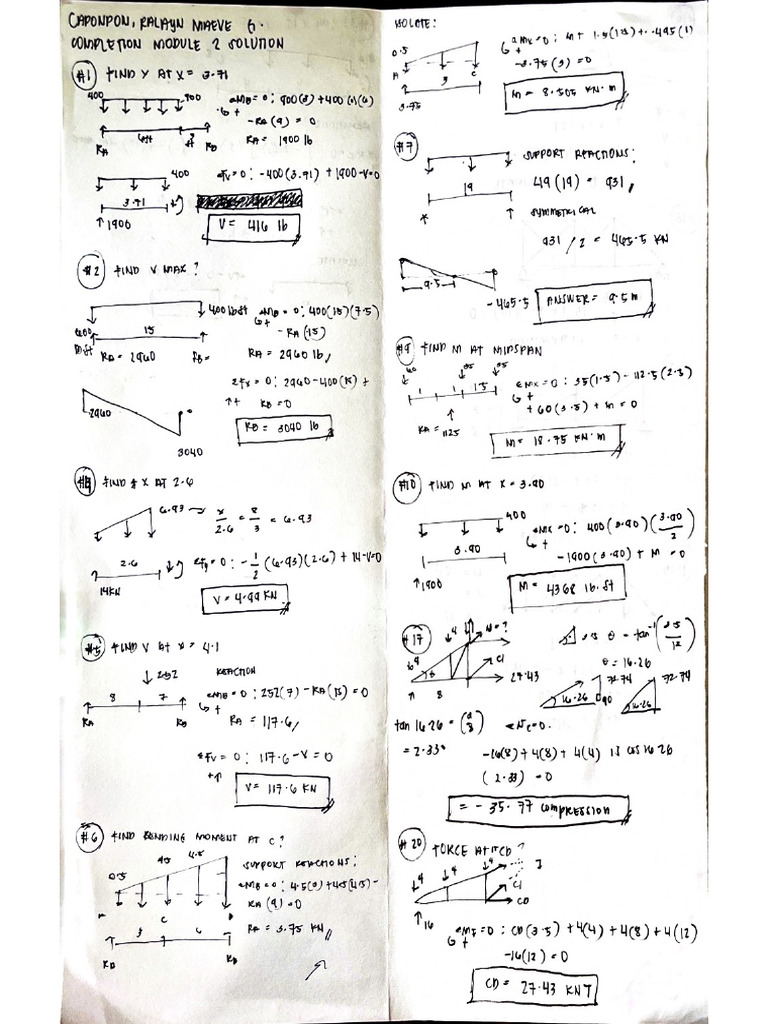 CAPONPON, RALAYN MAEVE G.
COMPLETION MODULE 2 SOLUTION
#1 FIND V AT X = 3.71
400 400
ΣMB=0: 900(3)+400(6)(6)
-RA(9) = 0
RA = 1900 lb
RA RB
400
ΣFV=0: -400(3.71)+1900-V=0
3.71
1900
V = 416 lb
#2 FIND V MAX?
400 lb/ft
ΣMB=0: 400(15)(7.5)
-RA(15)
15
RA = 2960 RB=
RA = 2960 lb
ΣFV=0: 2960-400(15)+
RB=0
2960
RB = 3040 lb
3040
FIND @ X AT 2.6
6.93 → x/2.6 = 8/3 = 6.93
2.6
ΣFy=0: -1/2(6.93)(2.6)+14-V=0
14KN
V = 4.99 KN
#5 FIND V AT X = 4.1
252
REACTION
8 7
ΣMB=0: 252(7)-RA(15)=0
RA RB
RA = 117.6
ΣFV=0: 117.6-V=0
V = 117.6 KN
#6 FIND BENDING MOMENT AT C?
0.5 4.5
SUPPORT REACTIONS:
C B
3 6
RA(9)=0
RA RB
RA = 3.75 KN
ISOLATE:
0.5
-3.75(3)=0
A 3 C
3.75
M = 8.505 KN·M
#7
SUPPORT REACTIONS:
19
49(19) = 931
SYMMETRICAL
931/2 = 465.5 KN
9.5
-465.5
ANSWER = 9.5 m
#9 FIND M AT MIDSPAN
1 1 1.5
ΣMX=0: 35(1.5)-112.5(2.5)
+60(3.5)+M=0
RA = 112.5
M = 18.75 KN·M
#10 FIND M AT X = 3.90
400
ΣMX=0: 400(3.90)(3.90/2)
3.90
-1900(3.90)+M=0
1900
M = 4368 lb·ft
#17
3.5 θ = tan⁻¹(3.5/12)
θ = 16.26
CI
27.43
8
72.74 72.74
16.26 90 16.26
tan 16.26 = (a/8)
= 2.33
-16(8)+4(8)+4(4) IJ cos 16.26
(2.33) = 0
= -35.77 COMPRESSION
#20 FORCE AT ITCD?
4 4 4
CI
CD
16
ΣMI=0: CD(3.5)+4(4)+4(8)+4(12)
-16(12)=0
CD = 27.43 KN T